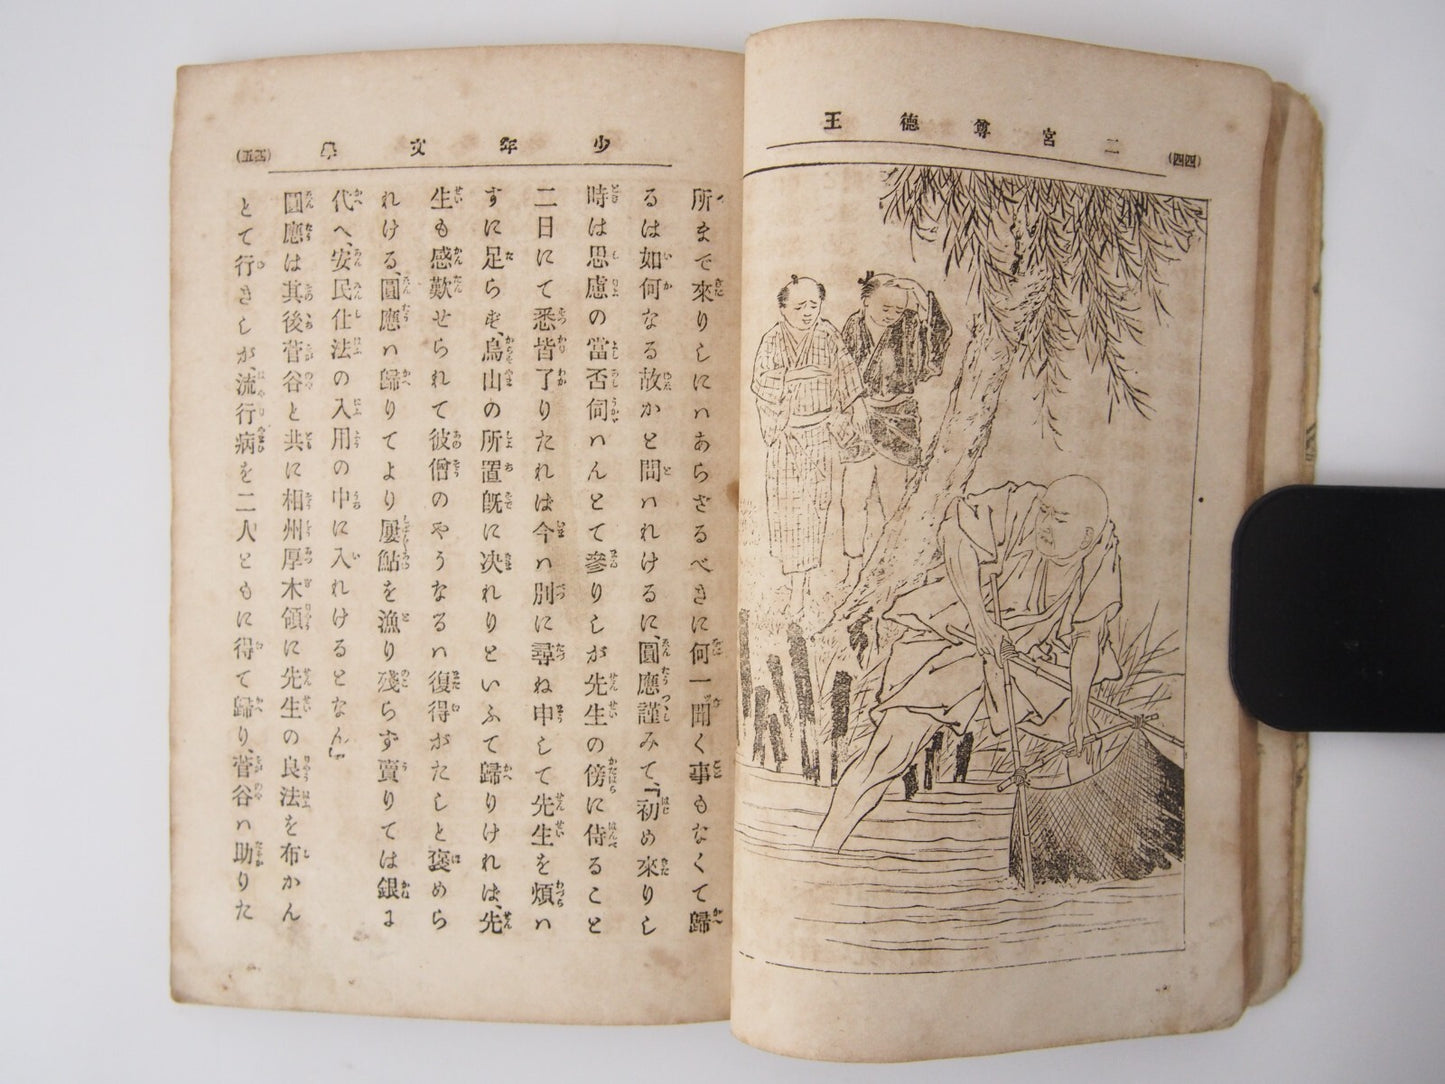 二宮尊徳王
(四四)
少年文學
(四五)
所まで來りしにハあらざるべきに何一ツ聞く事もなくて歸
るは如何なる故かと問ハれけるに、圓應謹みて、『初め來りし
時は思慮の當否伺ハんとて參りしが先生の傍に侍ること
二日にて悉皆了りたれは今ハ別に尋ね申して先生を煩ハ
すに足らず、烏山の所置既に决れりといふて歸りければ、先
生も感歎せられて彼僧のやうなるハ復得がたしと褒めら
れける、圓應ハ歸りてより屢鮎を漁り殘らず賣りては銀に
代へ、安民仕法の入用の中に入れけるとなん』
圓應は其後菅谷と共に相州厚木領に先生の良法を布かん
とて行きしが、流行病を二人ともに得て歸り、菅谷ハ助りた